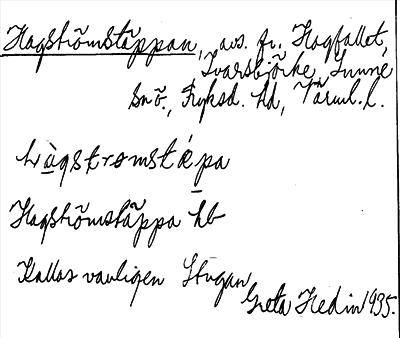 Hagströmstäppan, avs. fr. Hagfallet,
Ivarsbjörke, Sunne
Sn., Fryksd. hd, Värml. l.
hàgstrømstǽpa
Hagströmstäppa hb
Kallas vanligen Stugan
Greta Hedin 1935.